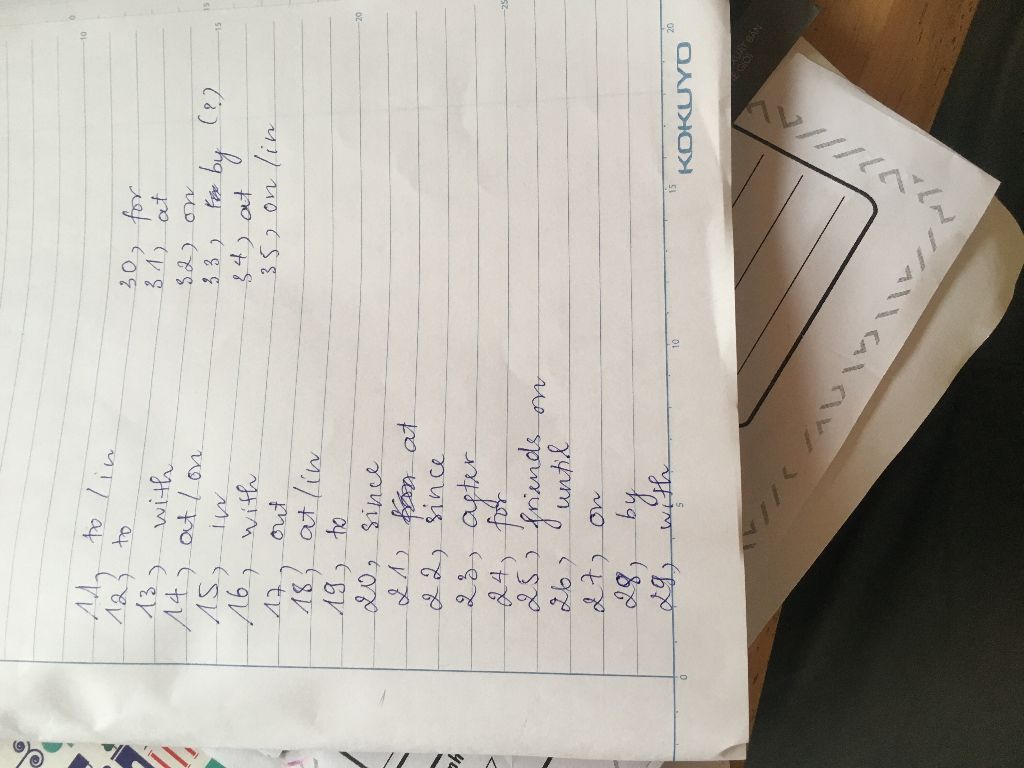 11, to / in
12, to
13, with
14, at / on
15, in
16, with
17, out
18, at / in
19, to
20, since
21, at
22, since
23, after
24, for
25, friends on
26, until
27, on
28, by
29, with
30, for
31, at
32, on
33, by (?)
34, at
35, on / in
KOKUYO
0
5
10
15
20
10
15
20
25